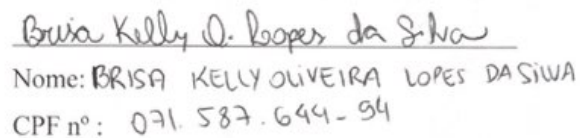 Brisa Kelly O. Lopes da Silva
Nome: BRISA KELLY OLIVEIRA LOPES DA SILVA
CPF nº: 071.587.644-94